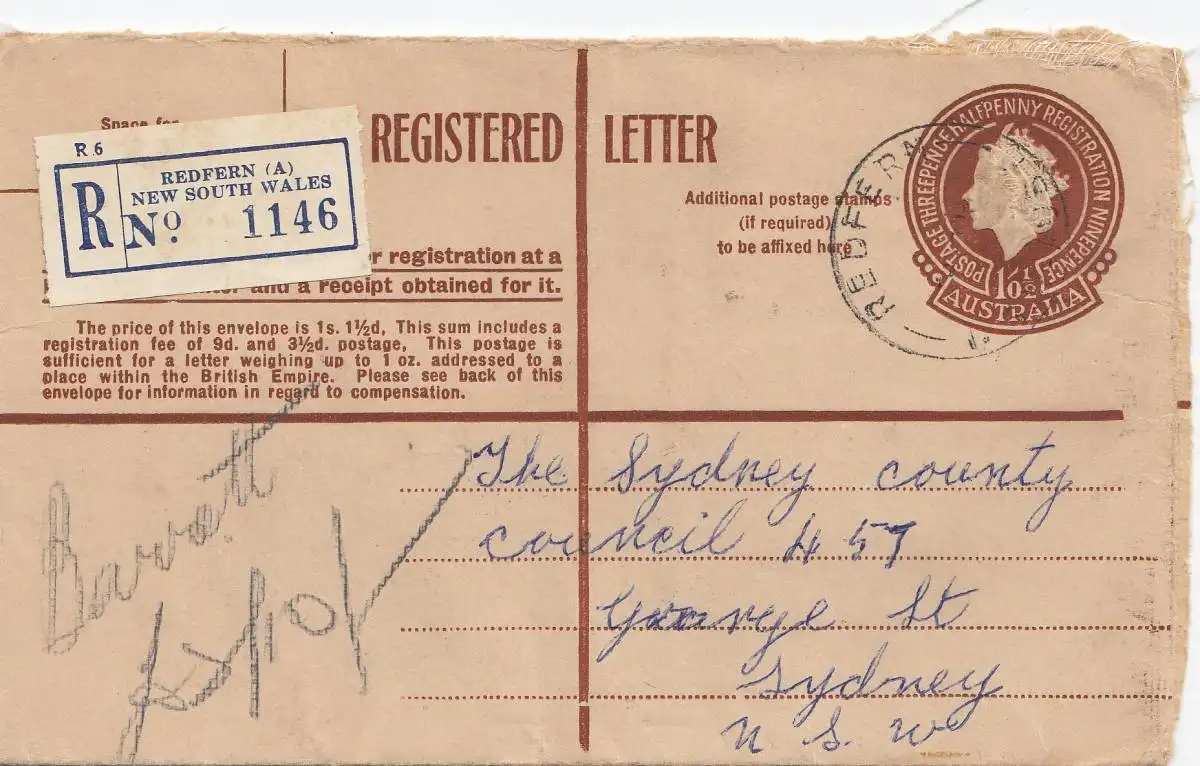 Space for
R 6
R
REDFERN (A)
NEW SOUTH WALES
No. 1146
REGISTERED LETTER
Additional postage stamps
(if required)
to be affixed here
POSTAGE THREEPENCE HALFPENNY REGISTRATION NINEPENCE
1/0½
AUSTRALIA
REDFERN
registration at a
and a receipt obtained for it.
The price of this envelope is 1s. 1½d, This sum includes a
registration fee of 9d. and 3½d. postage, This postage is
sufficient for a letter weighing up to 1 oz. addressed to a
place within the British Empire. Please see back of this
envelope for information in regard to compensation.
The Sydney county
council 457
George St
Sydney
N. S. W